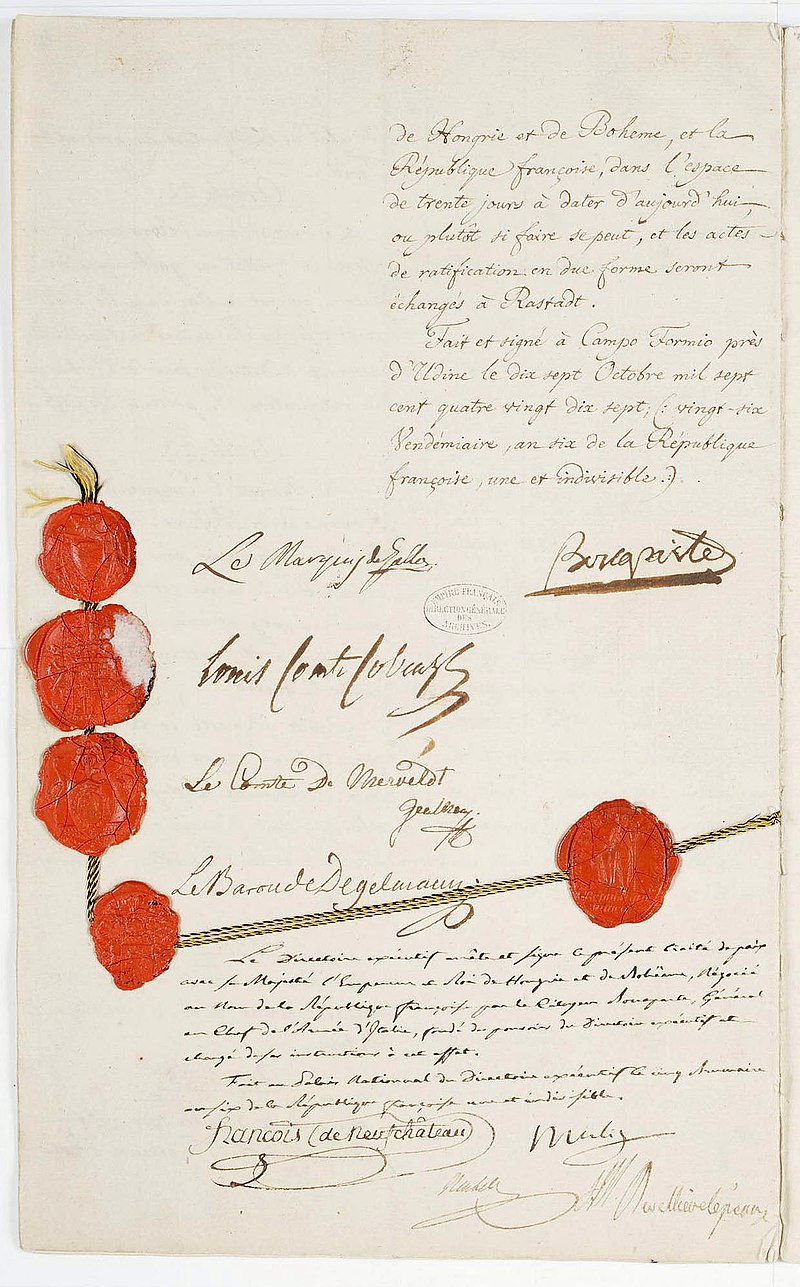 de Hongrie et de Boheme, et la
République françoise, dans l'espace
de trente jours à dater d'aujourd'hui,
ou plutôt si faire se peut, et les actes
de ratification en due forme seront
échangés à Rastadt.
Fait et signé à Campo Formio près
d'Udine le dix sept Octobre mil sept
cent quatre vingt dix sept; (: vingt-six
Vendémiaire, an six de la République
françoise, une et indivisible.:)
Le Marquis de Gallo. Bonaparte
EMPIRE FRANÇAIS
DIRECTION GÉNÉRALE
DES
ARCHIVES.
Louis Comte Cobenzl
Le Comte De Merveldt
Le Baron de Degelmann.
Le Directoire exécutif arrête et signe le présent traité de paix
avec sa Majesté l'Empereur et Roi de Hongrie et de Bohême, négocié
au nom de la République françoise par le Citoyen Bonaparte, Général
en Chef de l'Armée d'Italie, fondé de pouvoirs du Directoire exécutif et
chargé de ses instructions à cet effet.
Fait au Palais National du Directoire exécutif le cinq Brumaire
an six de la République françoise une et indivisible.
françois (de neufchâteau) Merlin